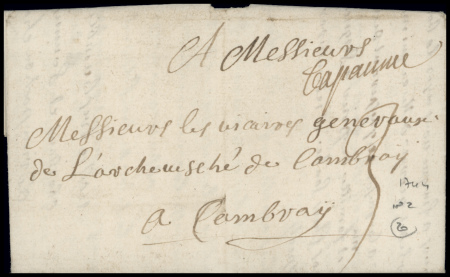 A Messieurs
Bapaume
Messieurs les vicaires genéraux
de L'archevesché de Cambray
a Cambraÿ
3
1744
n° 2
20